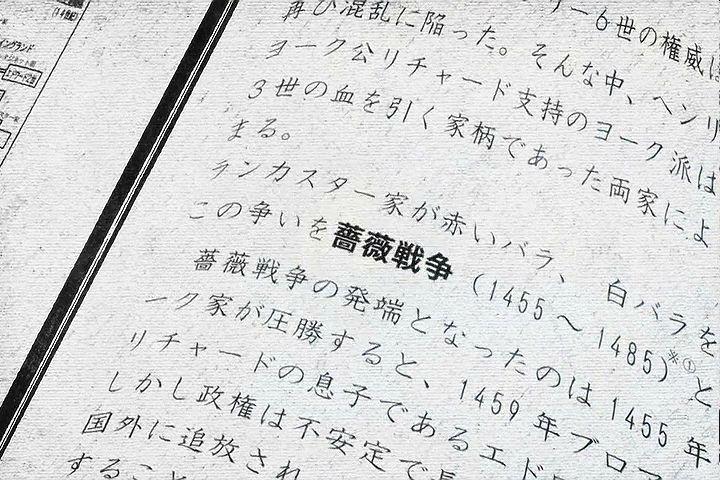 (14世紀)
イングランド
再び混乱に陥った。そんな中、ヘンリ
ー6世の権威は
ヨーク公リチャード支持のヨーク派は
3世の血を引く家柄であった両家によ
まる。
ランカスター家が赤いバラ、 白バラを
この争いを薔薇戦争 (1455～1485)※①と
薔薇戦争の発端となったのは1455年
ーク家が圧勝すると、1459年ブロ
リチャードの息子であるエド
しかし政権は不安定で
国外に追放され
すること